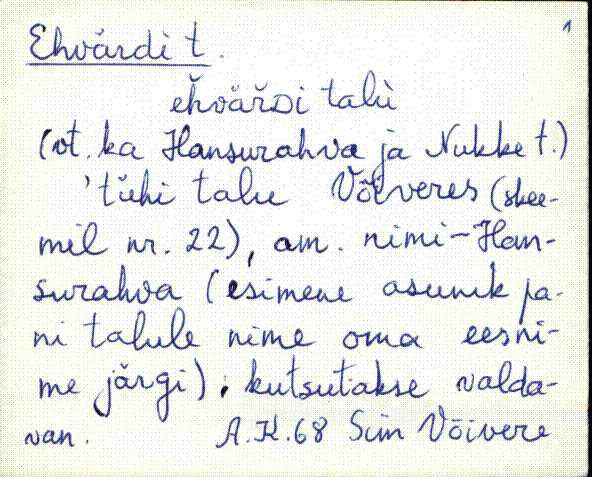 1
Ehvärdi t.
ehväʀᴅi talù
(vt. ka Hansurahva ja Nukke t.)
'tühi talu Võiveres (skee-
mil nr. 22), am. nimi - Han-
surahva (esimene asunik pa-
ni talule nime oma eesni-
me järgi); kutsutakse valda-
van. A.K.68 Siin Võivere